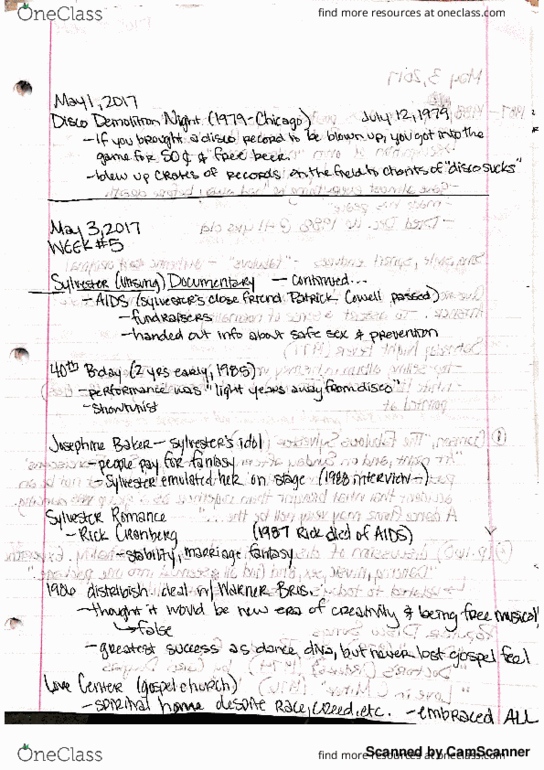 OneClass
find more resources at oneclass.com
May 1, 2017
Disco Demolition Night (1979-Chicago) July 12, 1979
- If you brought a disco record to be blown up, you got into the
game for 50¢ & free beer.
- blew up crates of records on the field to chants of "disco sucks"
May 3, 2017
WEEK #5
Sylvester (Unsung) Documentary - continued...
- AIDS (sylvester's close friend Patrick Cowell passed)
- fundraisers
- handed out info about safe sex & prevention
40th Bday (2 yrs early, 1985)
- performance was "light years away from disco"
- showtunist
Josephine Baker - sylvester's idol
- people pay for fantasy
- Sylvester emulated her on stage (1988 interview→)
Sylvester Romance
- Rick Cranberg (1987 Rick died of AIDS)
- stability, marriage fantasy
1986 distribish. deal w/ Warner Bros.
- thought it would be new era of creativity & being free musical
↳ false
- greatest success as dance diva, but never lost gospel feel
Love Center (gospel church)
- spiritual home despite race, creed, etc. - embraced ALL
OneClass
find more resources at oneclass.com
Scanned by CamScanner